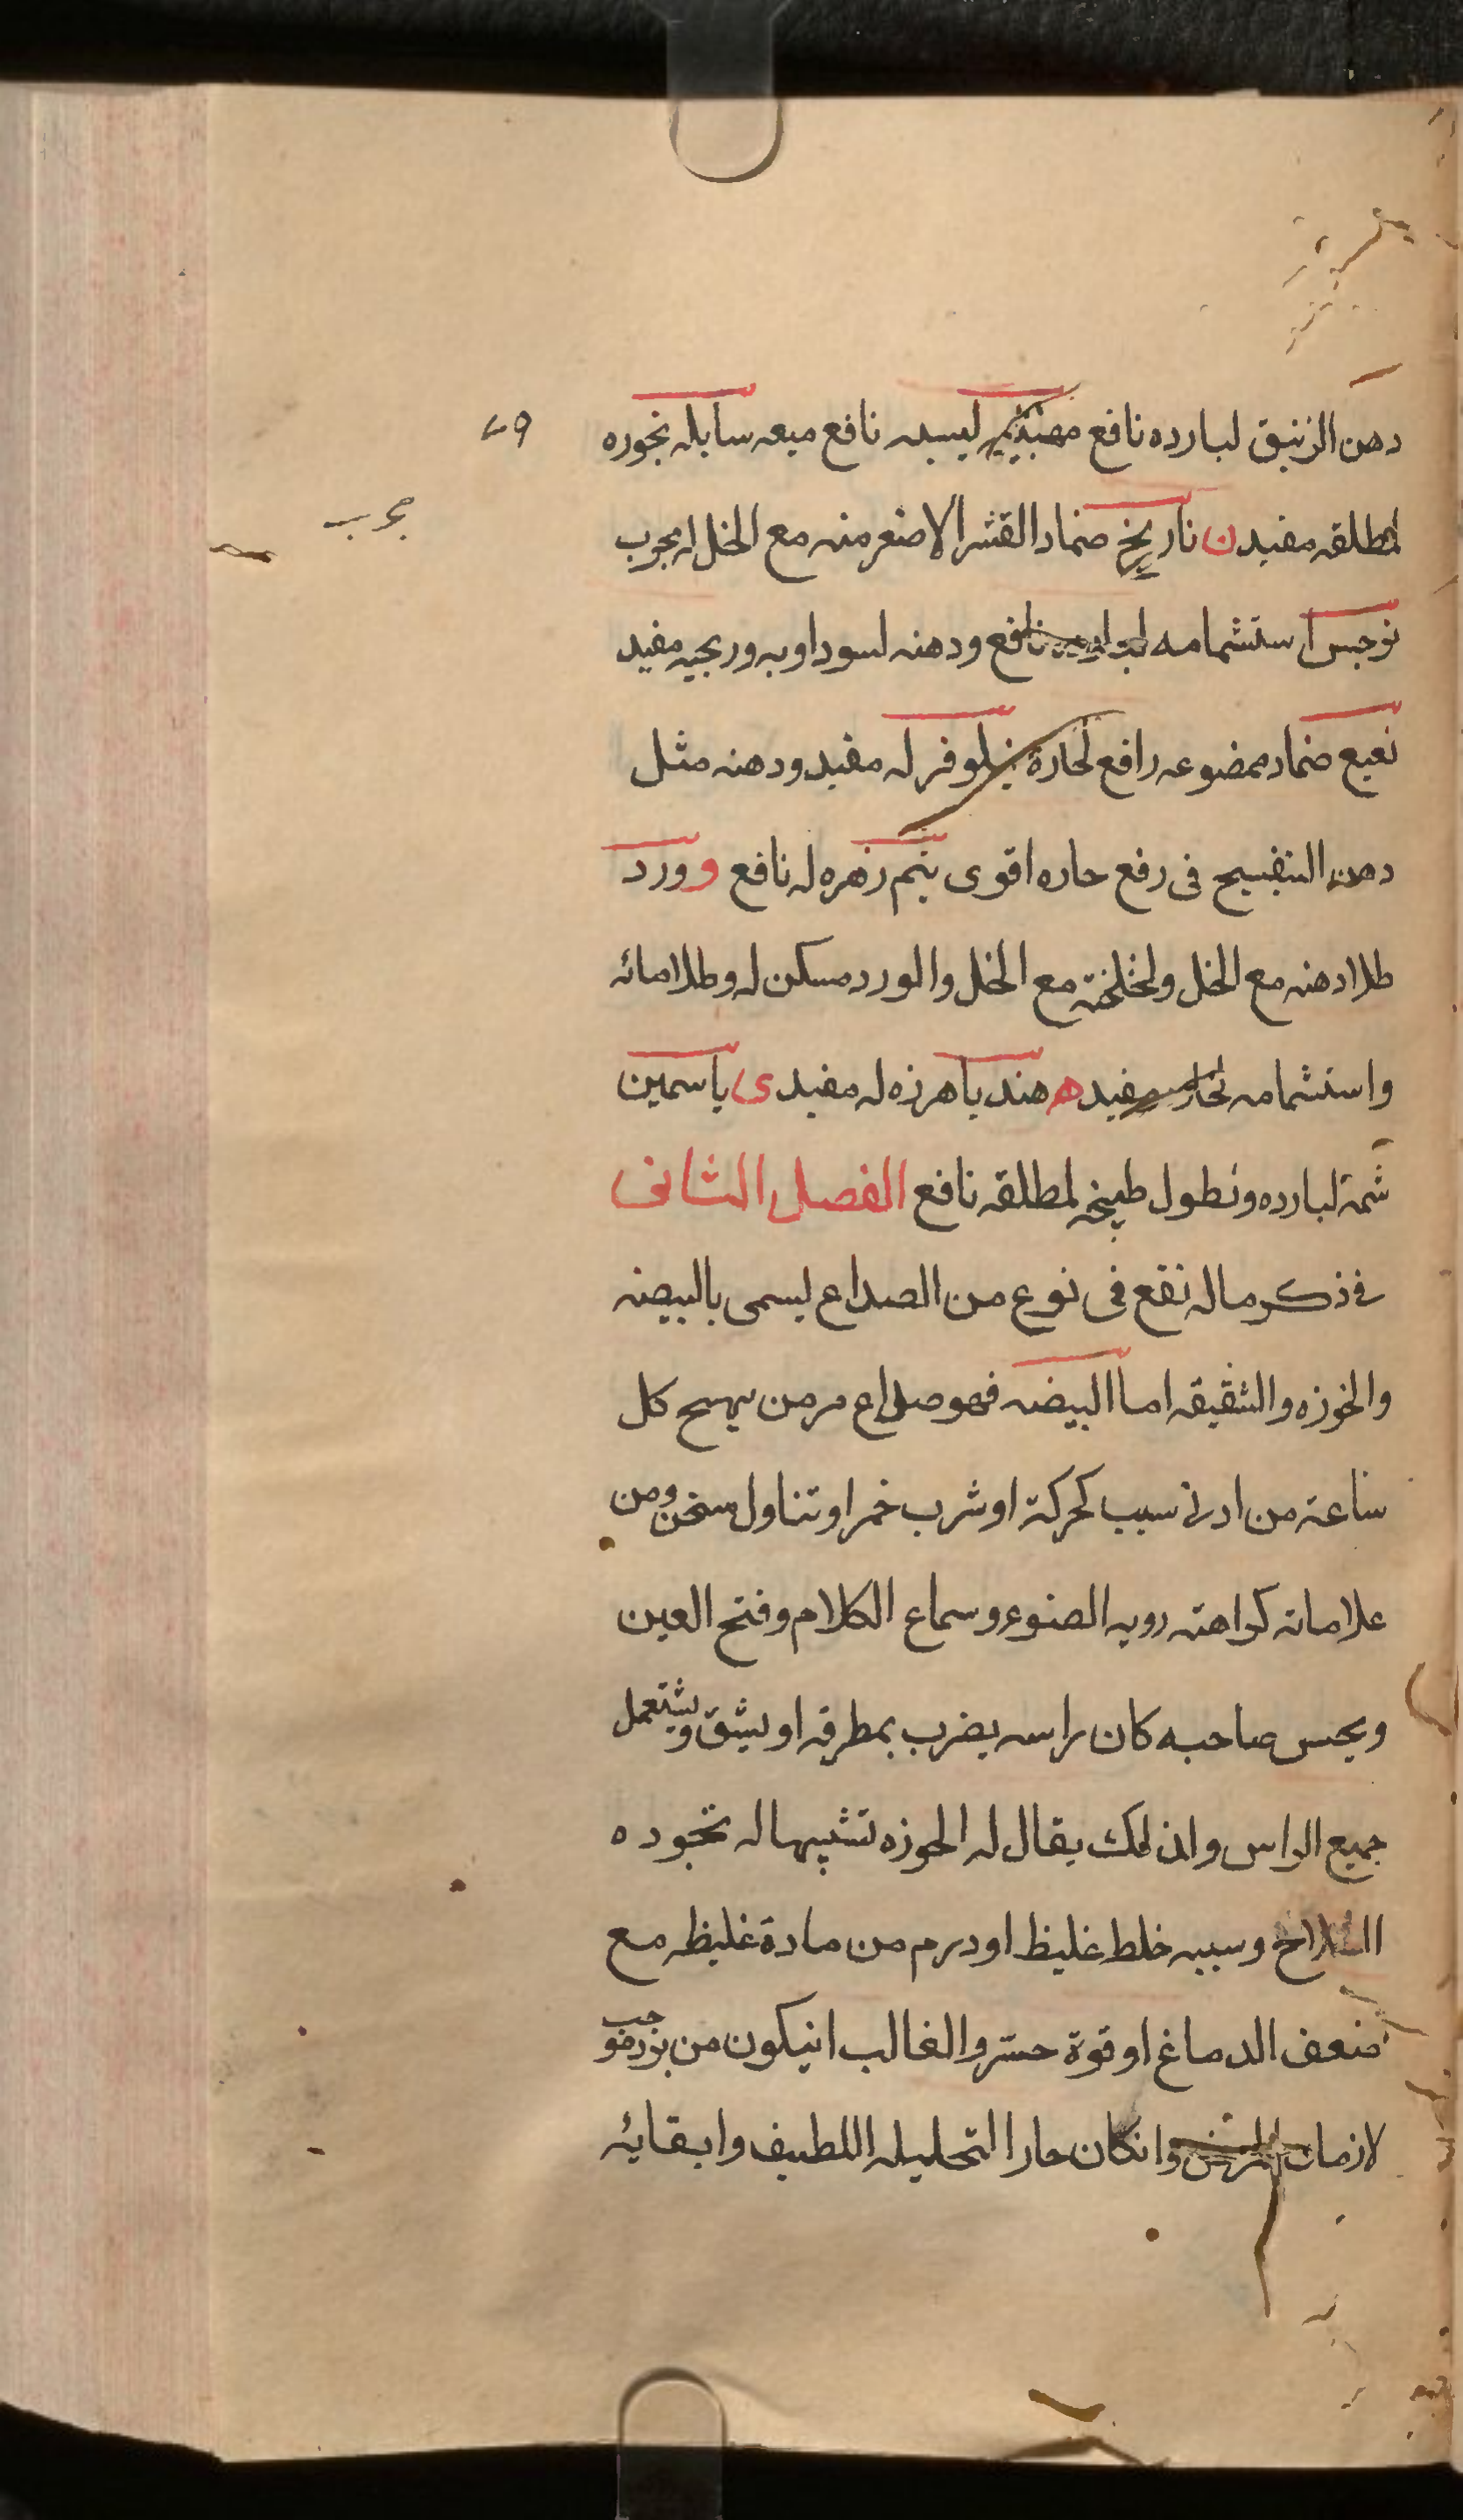 دهن الزنبق لبارده نافع ليسيه نافع ميعه سايله بخوره
٤٩
لمطلقه مفيد ن نارنج ضماد القشر الاصفر منه مع الخل له مجرب
مجرب
نرجس استشمامه نافع ودهنه لسوداويه وريحيه مفيد
نعنع ضماد ممضوعه رافع لحارة نيلوفر له مفيد ودهنه مثل
دهن البنفسج فى رفع حاره اقوى ينم زهره له نافع و ورد
طلا دهنه مع الخل ولخلخة مع الخل والورد مسكن له وطلا مائه
واستشمامه لحاره مفيد ه هندبا هرزه له مفيد ى ياسمين
شمه لبارده ونطول طبيخه لمطلقه نافع الفصل الثانى
فى ذكر ما له نفع فى نوع من الصداع يسمى بالبيضه
والخوزه والشقيقه اما البيضه فهو صداع مزمن يهيج كل
ساعة من ادنى سبب كحركة او شرب خمر او تناول سخن ومن
علاماته كراهته رويه الضوء وسماع الكلام وفتح العين
ويحس صاحبه كان راسه يضرب بمطرقه او يشق ويشتعل
جميع الراس ولذلك يقال له الخوزه تشبيها له بخوده
السلاح وسببه خلط غليظ او ورم من مادة غليظه مع
ضعف الدماغ او قوة حس والغالب انيكون من
لازمان وانكان حارا لتحليله اللطيف وابقائه